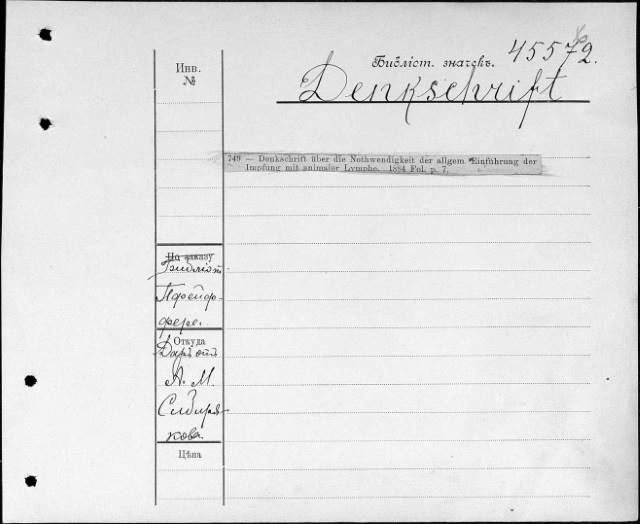 Инв.
№
Библіот. значекъ. 45572.
Denkschrift
749 — Denkschrift über die Nothwendigkeit der allgem. Einführung der
Impfung mit animaler Lymphe. 1884 Fol. p. 7.
По заказу
Библіот.
Пфейф-
фера.
Откуда
Даръ отъ
А. М.
Сибиря-
кова.
Цѣна